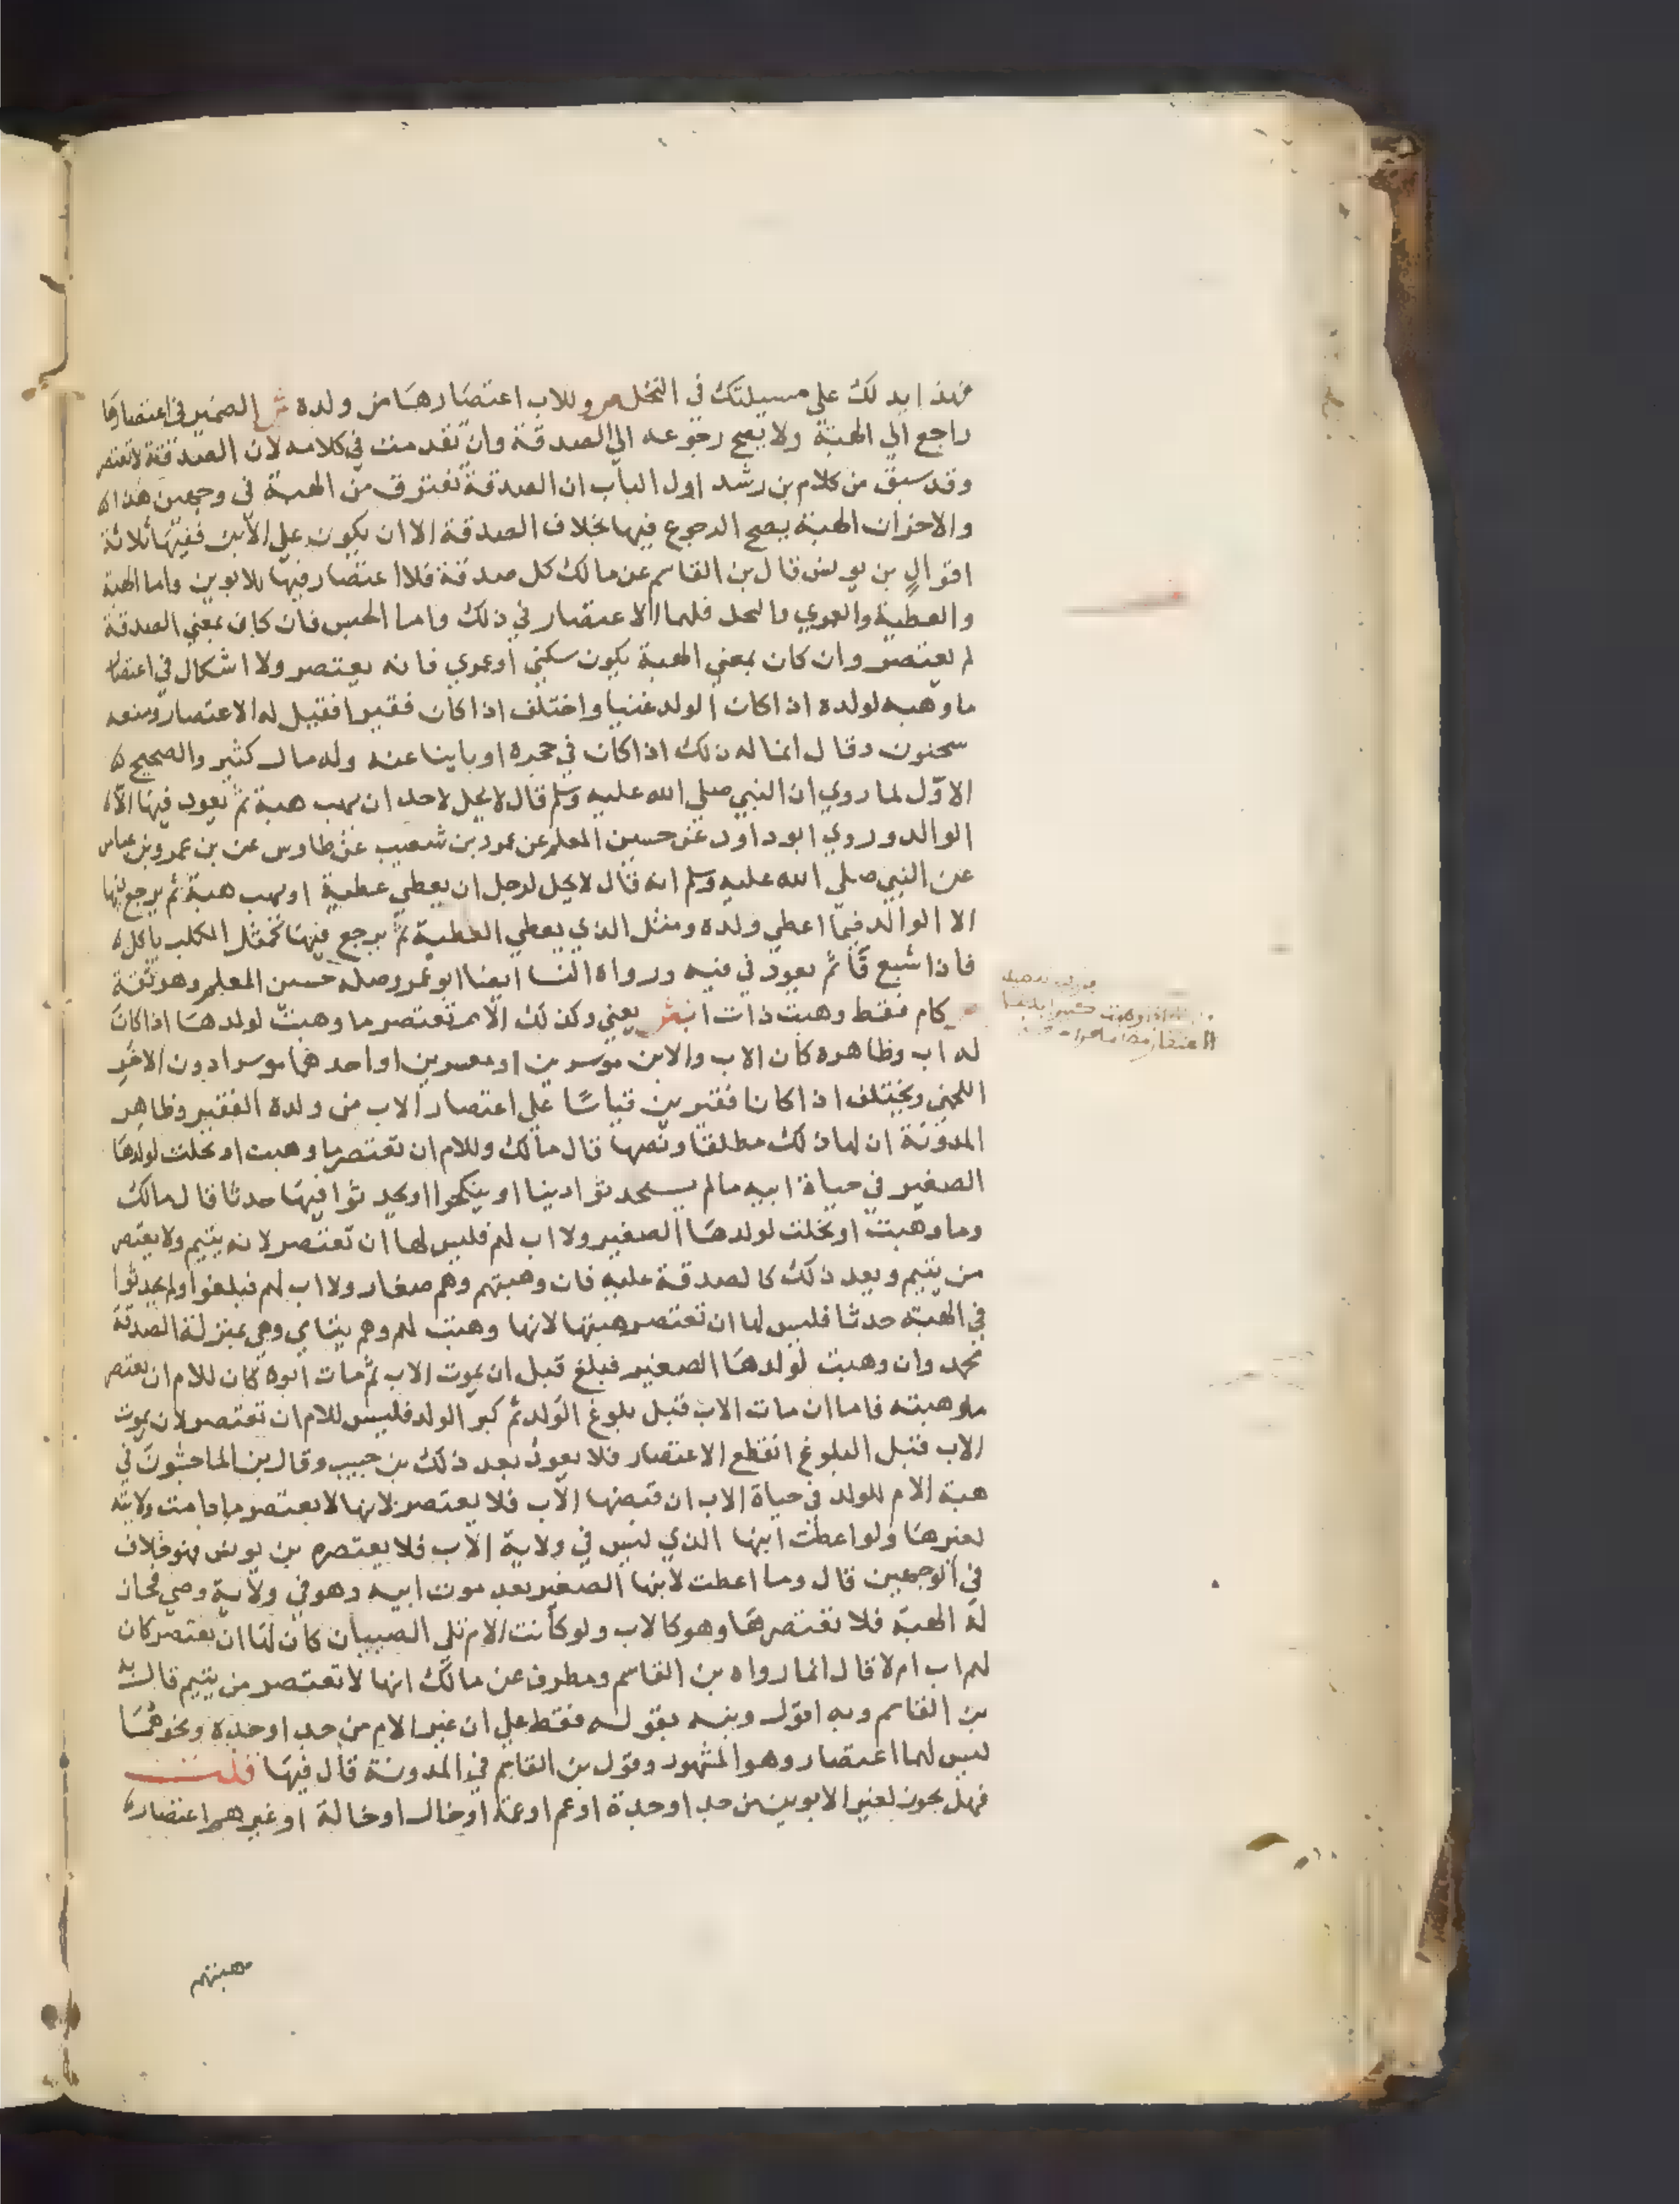 فهذا يدلك على مسيلتك في النحل ص وللاب اعتصارها من ولده ش الضمير في اعتصارها
راجع الي الهبة ولا يصح رجوعه الي الصدقة وان تقدمت في كلامه لان الصدقة لا تعتصر
وقد سبق من كلام بن رشد اول الباب ان الصدقة تفترق من الهبة في وجهين هذا
والاخر ان الهبة يصح الرجوع فيها بخلاف الصدقة الا ان يكون علي الابن ففيها ثلاثة
اقوال بن يونس قال بن القاسم عن مالك كل صدقة فلا اعتصار فيها للابوين واما الهبة
والعطية والعمري والنحل فلهما الاعتصار في ذلك واما الحبس فان كان بمعني الصدقة
لم يعتصر وان كان بمعني الهبة يكون سكني او عمري فانه يعتصر ولا اشكال في اعتصار
ما وهبه لولده اذا كان الولد غنيا واختلف اذا كان فقيرا فقيل له الاعتصار ومنعه
سحنون وقال انما له ذلك اذا كان في حجره او باينا عنه وله مال كثير والصحيح
الاول لما روي ان النبي صلي الله عليه وسلم قال لا يحل لاحد ان يهب هبة ثم يعود فيها الا
الوالد وروي ابو داود عن حسين المعلم عن عمرو بن شعيب عن طاوس عن بن عمر وبن عباس
عن النبي صلي الله عليه وسلم انه قال لا يحل لرجل ان يعطي عطية او يهب هبة ثم يرجع فيها
الا الوالد فيما اعطي ولده ومثل الذي يعطي العطية ثم يرجع فيها كمثل الكلب ياكل
فاذا شبع قا ثم يعود في قيه ورواه النسا ايضا ابو عمر وصله حسين المعلم وهو ثقة
ص كام فقط وهبت ذات اب ش يعني وكذلك الام تعتصر ما وهبت لولدها اذا كان
له اب وظاهره كان الاب والابن موسرين او معسرين او احدهما موسرا دون الاخر
اللخمي ويختلف اذا كانا فقيرين قياسا علي اعتصار الاب من ولده الفقير وظاهر
المدونة ان لها ذلك مطلقا ونصها قال مالك وللام ان تعتصر ما وهبت او نحلت لولدها
الصغير في حياة ابيه مالم يستحدثوا دينا او ينكحوا او يحدثوا فيها حدثا قال مالك
وما وهبت او نحلت لولدها الصغير ولا اب لهم فليس لها ان تعتصر لانه يتيم ولا يعتصر
من يتيم ويعد ذلك كالصدقة عليه فان وهبتهم وهم صغار ولا اب لهم فبلغوا ولم يحدثوا
في الهبة حدثا فليس لها ان تعتصر هبتها لانها وهبت لهم وهم يتامي وهي بمنزلة الصدقة
محمد وان وهبت لولدها الصغير فبلغ قبل ان يموت الاب ثم مات ابوه كان للام ان تعتصر
ما وهبته فاما ان مات الاب قبل بلوغ الولد ثم كبر الولد فليس للام ان تعتصر لان بموت
الاب قبل البلوغ انقطع الاعتصار فلا يعود بعد ذلك بن حبيب وقال بن الماجشون في
هبة الام للولد في حياة الاب ان قبضها الاب فلا يعتصر لانها لا يعتصر ما دامت ولايته
لغيرها ولو اعطت ابنها الذي ليس في ولاية الاب فلا يعتصره بن يونس فهو خلاف
في الوجهين قال وما اعطت لابنها الصغير بعد موت ابيه وهو في ولاية وصي فحاز
له الهبة فلا تعتصرها وهو كالاب ولو كانت الام تلي الصبيان كان لها ان تعتصر كان
لهم اب ام لا قال انما رواه بن القاسم ومطرف عن مالك انها لا تعتصر من يتيم قال به
بن القاسم وبه اقول ونبه بقوله فقط علي ان غير الام من جد او جدة ونحوهما
ليس لهما اعتصار وهو المشهور وقول بن القاسم في المدونة قال فيها قلت
فهل يجوز لغير الابوين من جد او جدة او عم او عمة او خال او خالة او غيرهم اعتصار
هبتهم